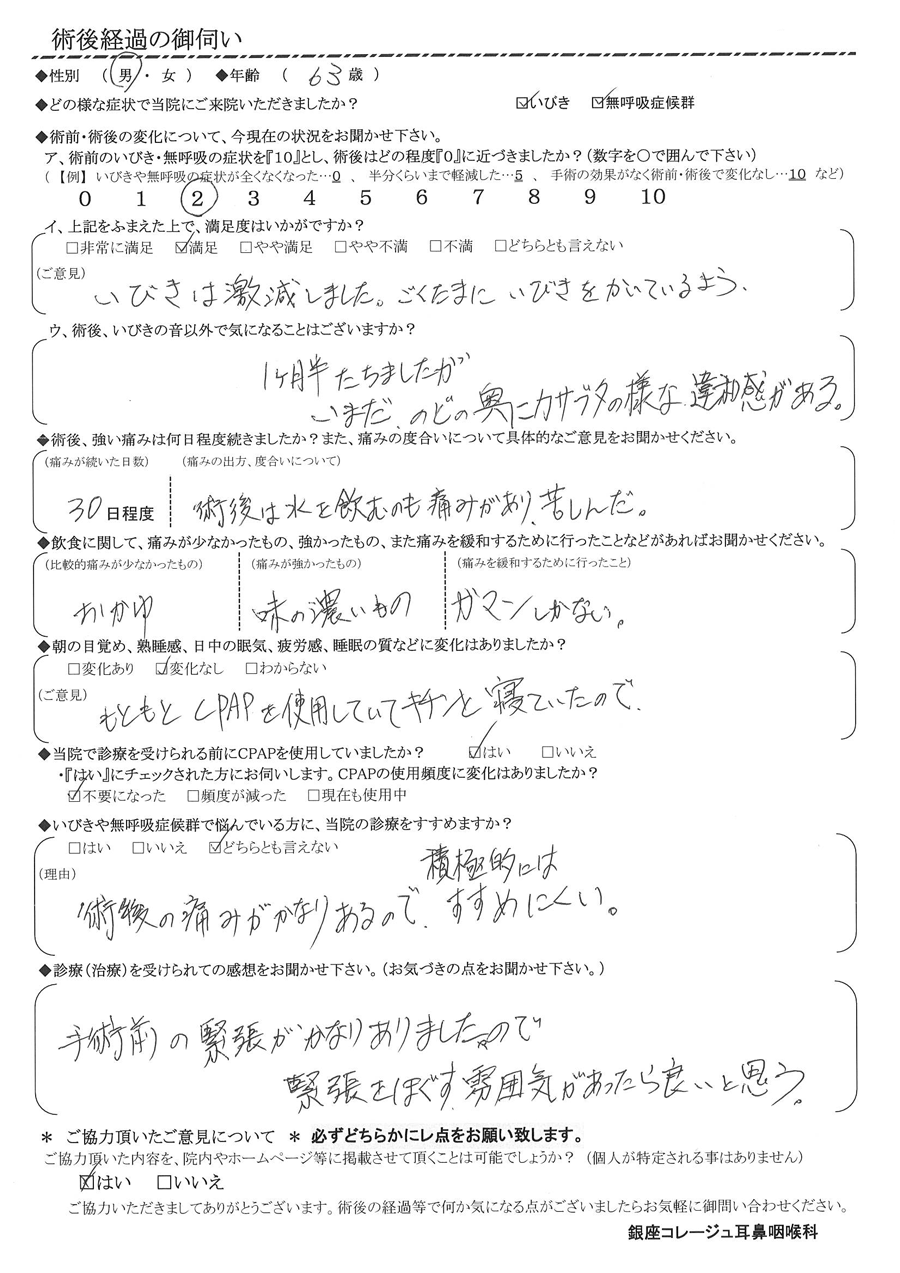 術後経過の御伺い
◆性別 ( 男 ・ 女 ) ◆年齢 ( 63 歳 )
◆どの様な症状で当院にご来院いただきましたか? ☑いびき ☑無呼吸症候群
◆術前・術後の変化について、今現在の状況をお聞かせ下さい。
ア、術前のいびき・無呼吸の症状を『10』とし、術後はどの程度『0』に近づきましたか?(数字を〇で囲んで下さい)
(【例】いびきや無呼吸の症状が全くなくなった…0 、 半分くらいまで軽減した…5 、 手術の効果がなく術前・術後で変化なし…10 など)
0 1 2 3 4 5 6 7 8 9 10
イ、上記をふまえた上で、満足度はいかがですか?
□非常に満足 ☑満足 □やや満足 □やや不満 □不満 □どちらとも言えない
(ご意見)
いびきは激減しました。ごくたまに いびきをかいているよう.
ウ、術後、いびきの音以外で気になることはございますか?
1ヶ月半たちましたが
いまだ、のどの奥にカサブタの様な違和感がある。
◆術後、強い痛みは何日程度続きましたか?また、痛みの度合いについて具体的なご意見をお聞かせください。
(痛みが続いた日数) (痛みの出方、度合いについて)
30日程度 術後は水を飲むのも痛みがあり、苦しんだ。
◆飲食に関して、痛みが少なかったもの、強かったもの、また痛みを緩和するために行ったことなどがあればお聞かせください。
(比較的痛みが少なかったもの) (痛みが強かったもの) (痛みを緩和するために行ったこと)
おかゆ 味の濃いもの ガマンしかない。
◆朝の目覚め、熟睡感、日中の眠気、疲労感、睡眠の質などに変化はありましたか?
□変化あり ☑変化なし □わからない
(ご意見)
もともとCPAPを使用していてキチンと寝ていたので.
◆当院で診療を受けられる前にCPAPを使用していましたか? ☑はい □いいえ
・『はい』にチェックされた方にお伺いします。CPAPの使用頻度に変化はありましたか?
☑不要になった □頻度が減った □現在も使用中
◆いびきや無呼吸症候群で悩んでいる方に、当院の診療をすすめますか?
□はい □いいえ ☑どちらとも言えない
(理由)
積極的には
術後の痛みがかなりあるので、すすめにくい。
◆診療(治療)を受けられての感想をお聞かせ下さい。(お気づきの点をお聞かせ下さい。)
手術前の緊張がかなりありましたので
緊張をほぐす雰囲気があったら良いと思う。
* ご協力頂いたご意見について * 必ずどちらかにレ点をお願い致します。
ご協力頂いた内容を、院内やホームページ等に掲載させて頂くことは可能でしょうか? (個人が特定される事はありません)
☑はい □いいえ
ご協力いただきましてありがとうございます。術後の経過等で何か気になる点がございましたらお気軽に御問い合わせください。
銀座コレージュ耳鼻咽喉科